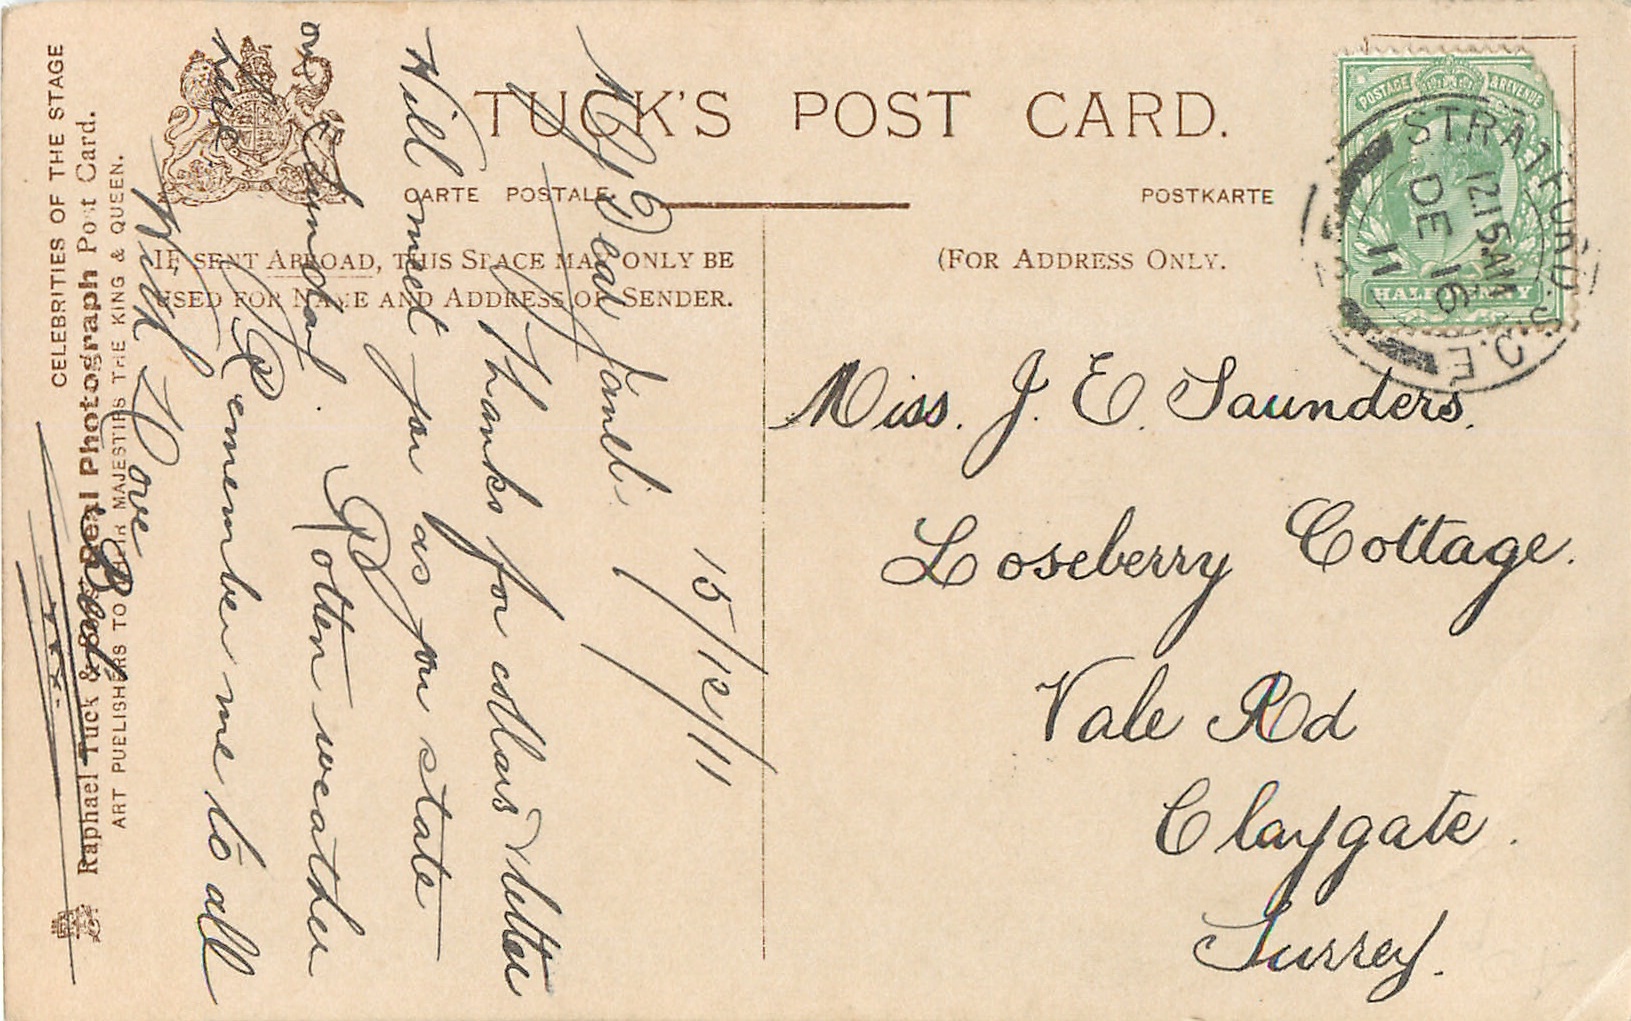 TUCK'S POST CARD.
CARTE POSTALE
POSTKARTE
IF SENT ABROAD, THIS SPACE MAY ONLY BE
USED FOR NAME AND ADDRESS OF SENDER.
(FOR ADDRESS ONLY.
POSTAGE & REVENUE
HALFPENNY
STRATFORD. S.O. E
12.15 AM
DE 16
11
Miss. J. E. Saunders.
Loseberry Cottage.
Vale Rd
Claygate.
Surrey.
15/12/11
My Dear
Thanks for collars & letter
Will meet you as you state
on Sunday. Rotten weather
Remember me to all
With Love
xxx
CELEBRITIES OF THE STAGE
Raphael Tuck & Sons' Real Photograph Post Card.
ART PUBLISHERS TO THEIR MAJESTIES THE KING & QUEEN.